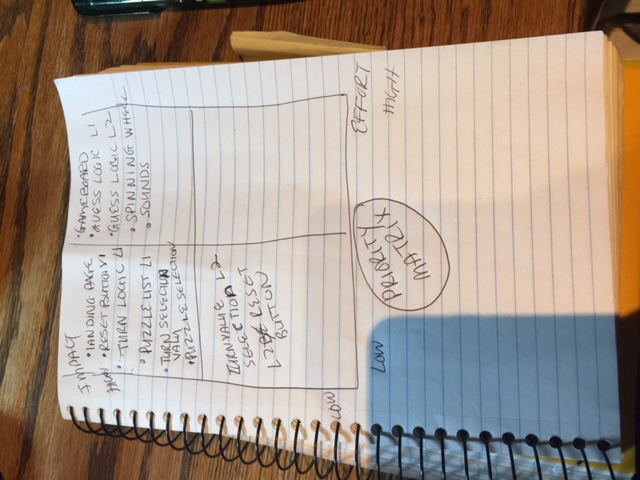 IMPACT
HIGH
• LANDING PAGE
• RESET BUTTON V1
• TURN LOGIC L1
• PUZZLE LIST L1
• TURN SELECTION
VALU
• PUZZLE SELECTION
• GAMEBOARD
• GUESS LOGIC L1
• GUESS LOGIC L2
• SPINNING WHEEL
• SOUNDS
TURNVALUE L2
SELECTION
L2 RESET
BUTTON
LOW
LOW
EFFORT
HIGH
PRIORITY
MATRIX